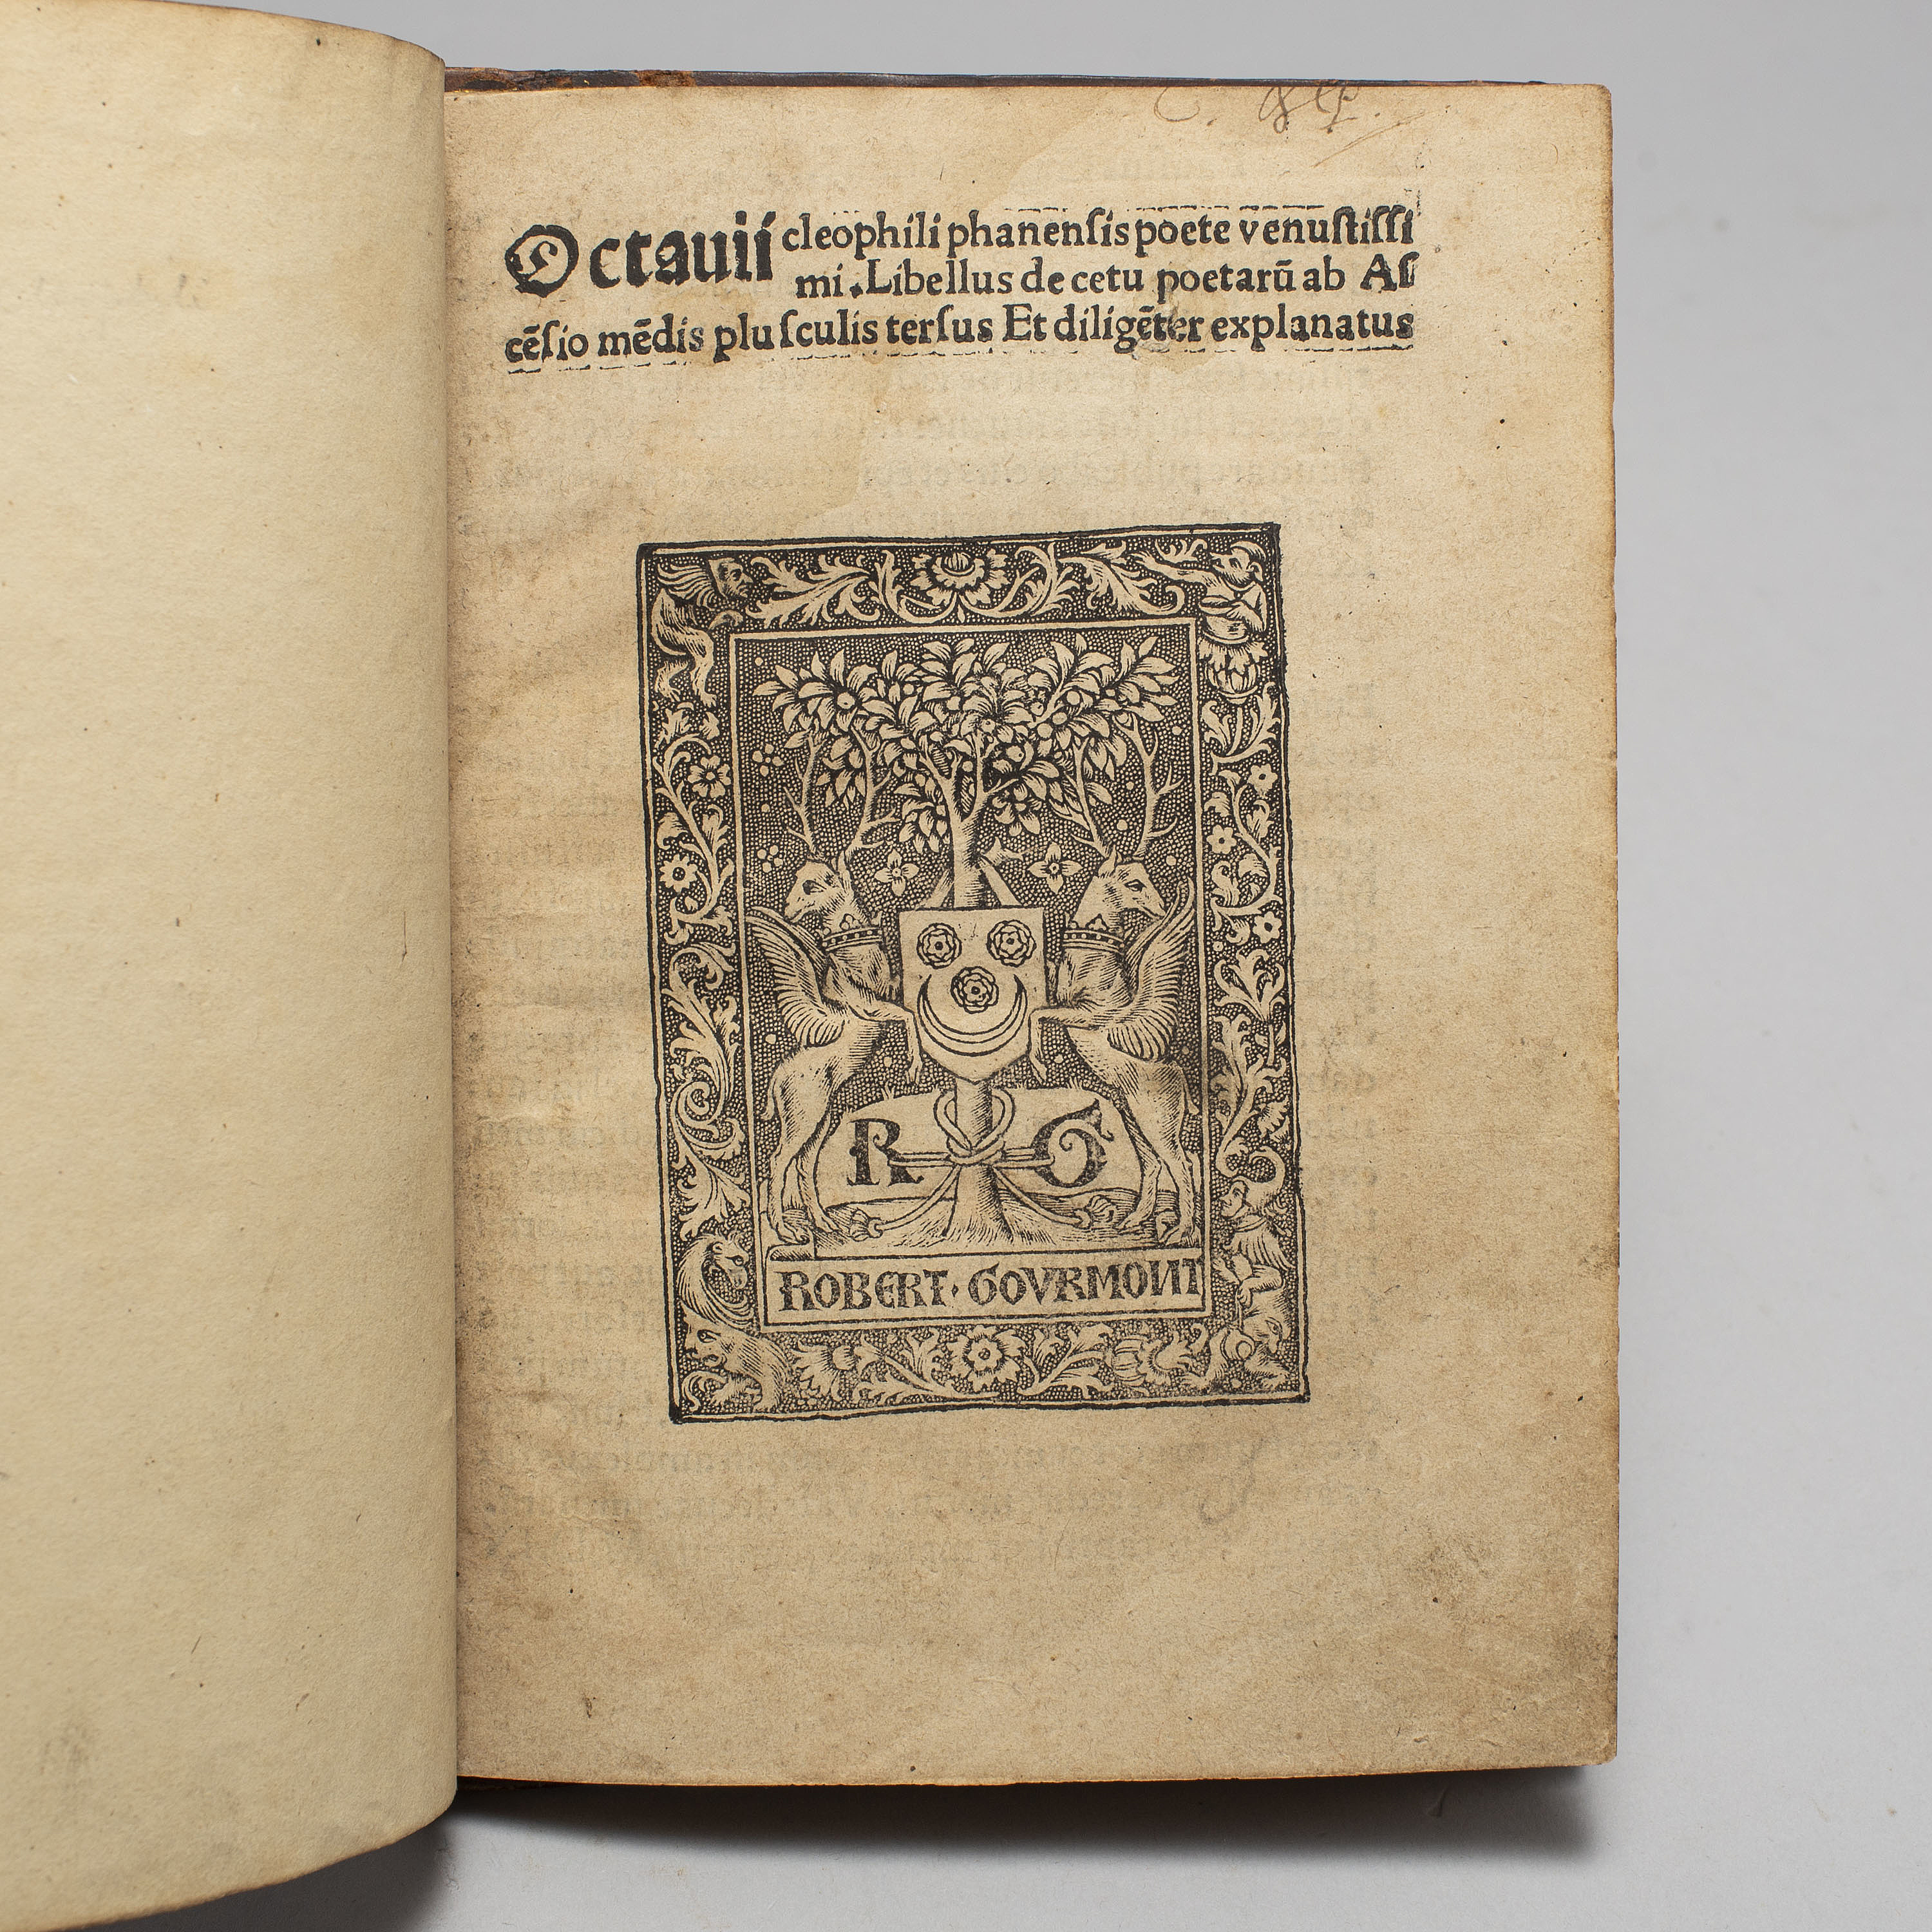 Octauii cleophili phanenſis poete venuſtiſſi
mi. Libellus de cetu poetarū ab Aſ
cēſio mēdis pluſculis terſus Et diligēter explanatus
R G
ROBERT · GOVRMONT